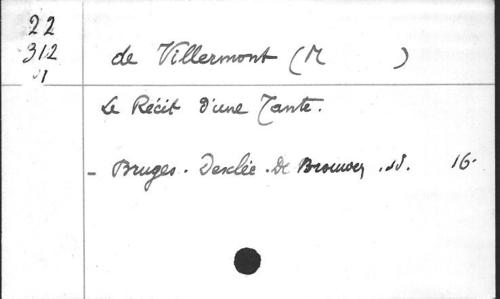 22
312
de Villermont (M )
Le Récit d'une Tante.
- Bruges. Desclée. De Brouwer, sd. 16-